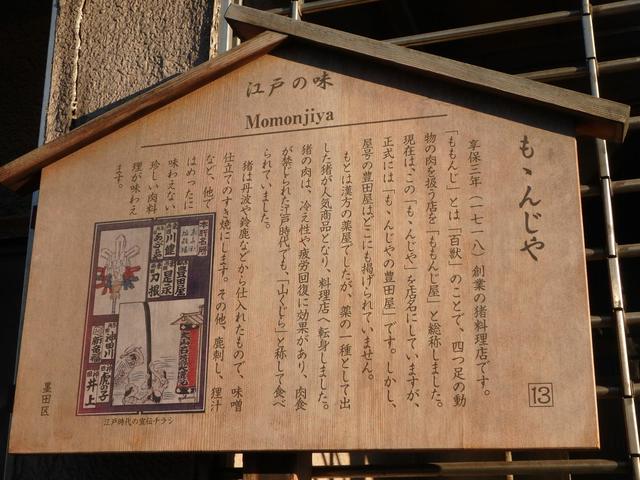 江戸の味
Momonjiya
もゝんじや
享保三年(一七一八)創業の猪料理店です。
「ももんじ」とは「百獣」のことで、四つ足の動
物の肉を扱う店を「ももんじ屋」と総称しました。
現在はこの「もゝんじや」を店名にしていますが、
正式には「もゝんじやの豊田屋」です。しかし、
屋号の豊田屋はどこにも掲げられていません。
もとは漢方の薬屋でしたが、薬の一種として出
した猪が人気商品となり、料理店へ転身しました。
猪の肉は、冷え性や疲労回復に効果があり、肉食
が禁じられた江戸時代でも、「山くじら」と称して食べ
られていました。
猪は丹波や鈴鹿などから仕入れたもので、味噌
仕立てのすき焼にします。その他、鹿刺し、狸汁
など、他で
はめったに
味わえない
珍しい肉料
理が味わえ
ます。
本所名所
豊田屋
川龍
星禾
あづま
刀根
神田川
新杵
虎の子
井上
江戸時代の宣伝チラシ
墨田区
13